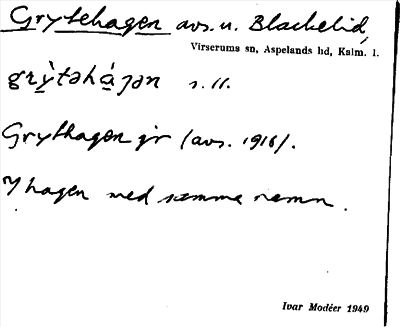 Grytehagen avs. u. Blackelid,
Virserums sn, Aspelands hd, Kalm. l.
grỳtəhàgən s. ll.
Grythagen gv (avs. 1916).
I hagen med samma namn.
Ivar Modéer 1949